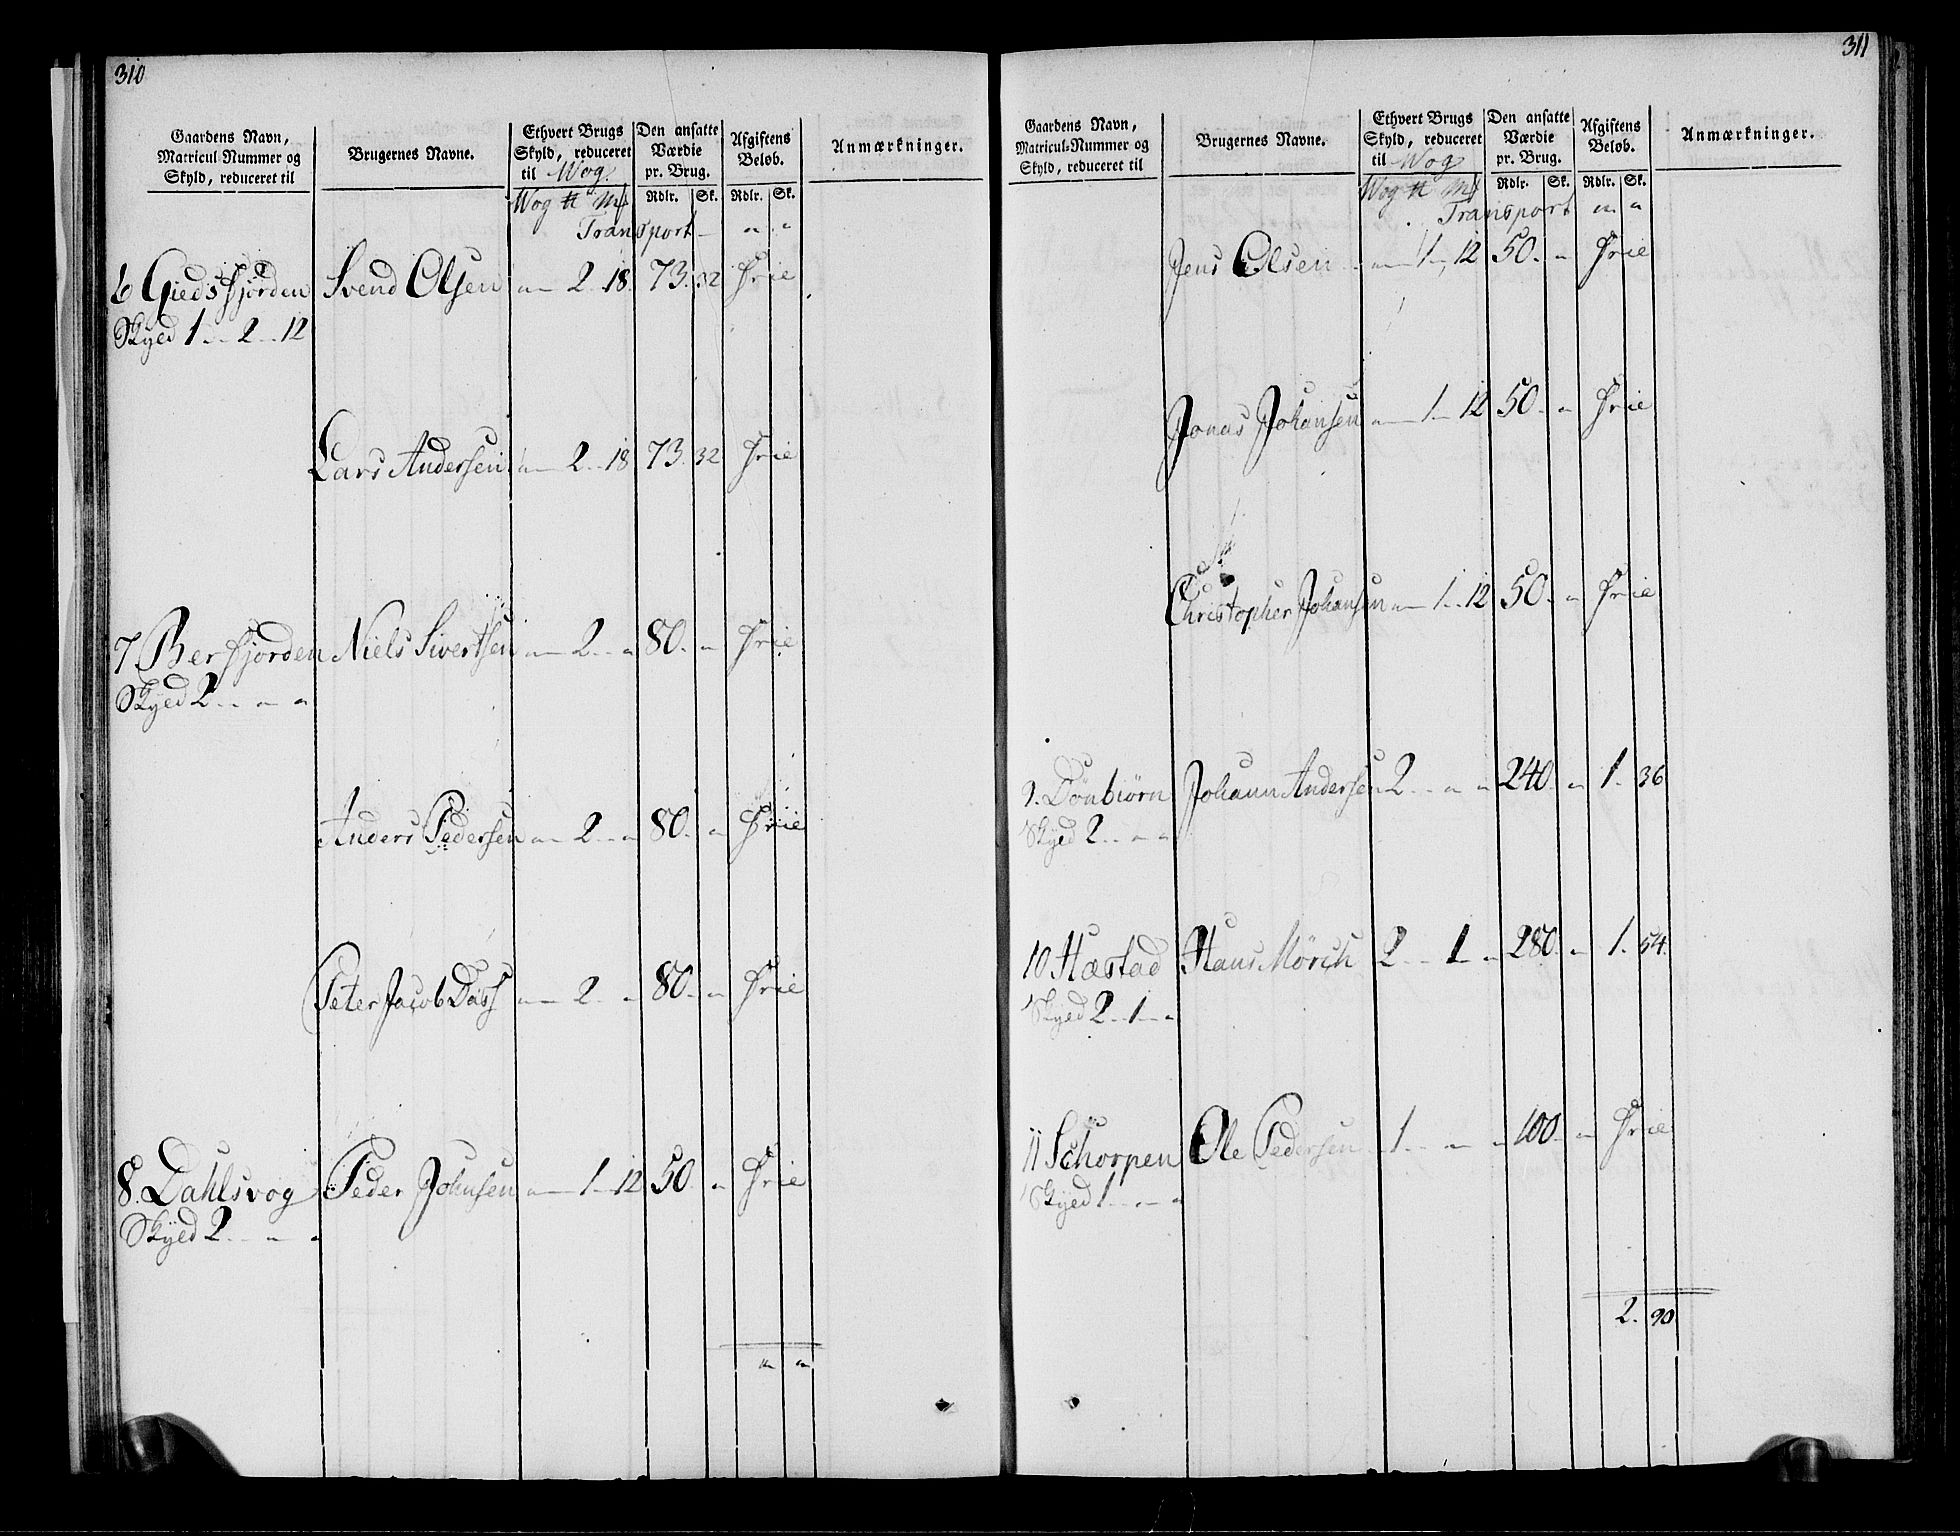 310
Gaardens Navn, Matricul-Nummer og Skyld, reduceret til | Brugernes Navne. | Ethvert Brugs Skyld, reduceret til Wog | Den ansatte Værdie pr. Brug. | Afgiftens Beløb. | Anmærkninger.
Wog ℔ Mk | Rdlr. | Sk. | Rdlr. | Sk.
Transport — " "
6 Giedsfjorden Svend Olsen " 2 18 73. 32 Frie
Skyed 1 2 12
Lars Andersen " 2 18 73. 32 Frie
7. Berfjorden Niels Sivertsen " 2 " 80. " Frie
Skyed 2 " "
Anders Pedersen " 2 " 80. " Frie
Peter Jacob Dass " 2 " 80. " Frie
8. Dahlsvog Peder Johnsen " 1 12 50. " Frie
Skyed 2 " "
" "
311
Gaardens Navn, Matricul-Nummer og Skyld, reduceret til | Brugernes Navne. | Ethvert Brugs Skyld, reduceret til Wog | Den ansatte Værdie pr. Brug. | Afgiftens Beløb. | Anmærkninger.
Wog ℔ Mk | Rdlr. | Sk. | Rdlr. | Sk.
Transport " "
Jens Olsen " 1 12 50. " Frie
Jonas Johansen " 1 12 50. " Frie
Christopher Johansen " 1 12 50. " Frie
9. Dönbiörn Johann Andersen 2 " " 240. " 1. 36
Skyed 2 " "
10 Hæstad Hans Mörch 2 1 " 280. " 1. 54.
Skyed 2 1 "
11 Schorpen Ole Pedersen 1 " " 100. " Frie
Skyed 1 " "
2. 90